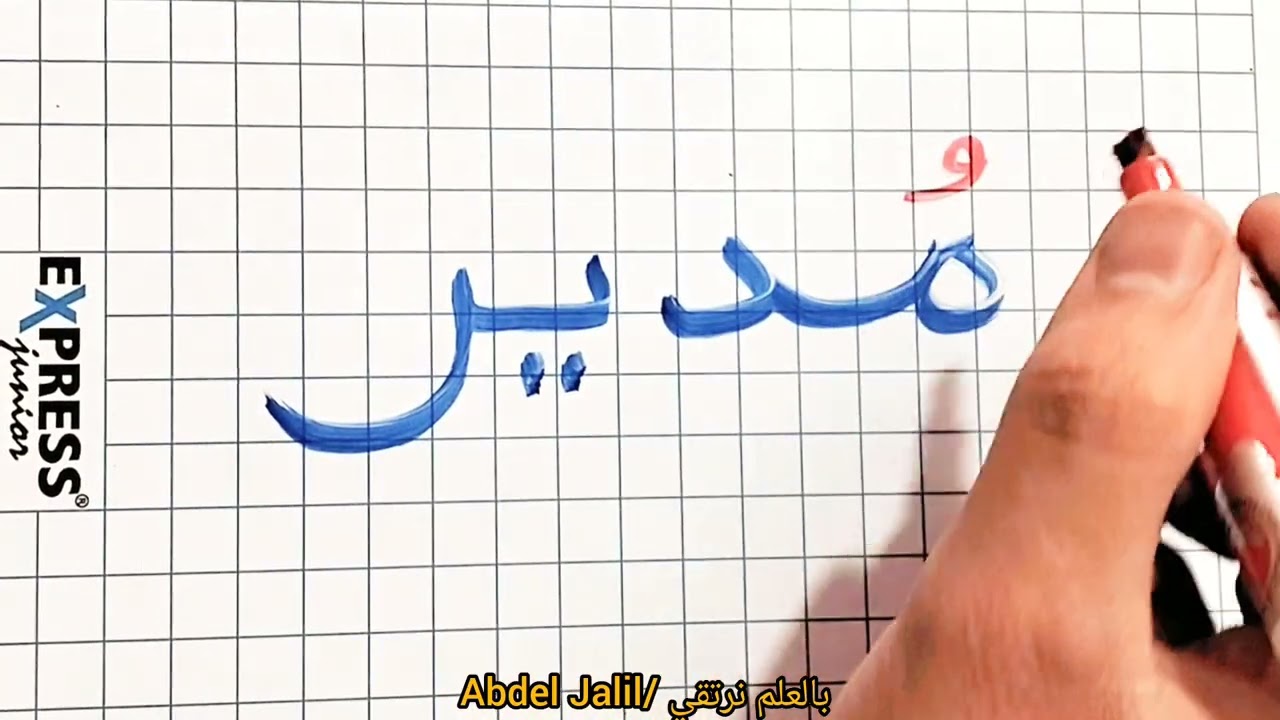 مُدير
EXPRESS®
junior
Abdel Jalil/ بالعلم نرتقي